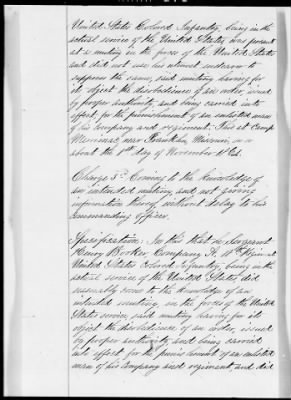 United States Colored Infantry, being in the
actual service of the United States, was present
at a mutiny in the forces of the United States
and did not use his utmost endeavor to
suppress the same, said mutiny having for
its object the disobedience of an order issued
by proper authority and being carried into
effect, for the punishment of an enlisted man
of his Company and regiment. This at Camp
near Missouri, on or
about the 1st day of November
Charge 3d Coming to the Knowledge of
an intended mutiny, and not giving
information thereof without delay to his
commanding officer.
Specification: In this that he Sergeant
Henry Company A,
United States Colored Infantry, being in the
actual service of the United States, did
come to the knowledge of an
intended mutiny, in the forces of the United
States service, said mutiny having for its
object the disobedience of an order, issued
by proper authority and being carried
into effect for the punishment of an enlisted
man of his Company and regiment, and did